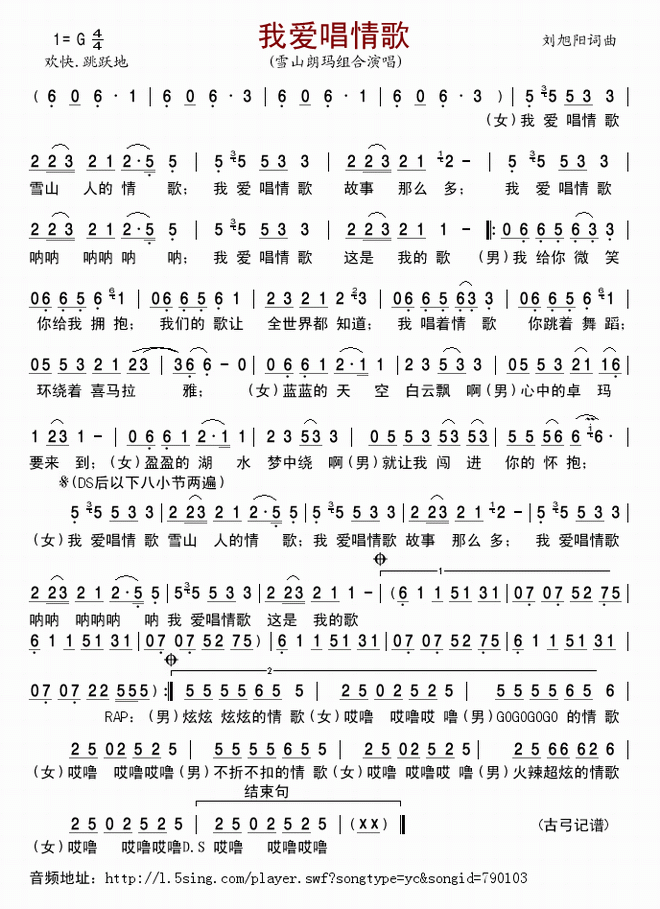 我爱唱情歌
1=G 4/4
刘旭阳词曲
欢快.跳跃地
(雪山朗玛组合演唱)
( 6 0 6 · 1 | 6 0 6 · 3 | 6 0 6 · 1 | 6 0 6 · 3 ) | 5 5 5 3 3 |
(女)我 爱 唱情 歌
2 2 3 2 1 2 · 5 5 | 5 5 5 3 3 | 2 2 3 2 1 2 - | 5 5 5 3 3 |
雪山 人的 情 歌; 我 爱 唱情 歌 故事 那么 多; 我 爱 唱情 歌
2 2 3 2 1 2 · 5 5 | 5 5 5 3 3 | 2 2 3 2 1 1 - ‖: 0 6 6 5 6 3 3 |
呐呐 呐呐 呐 呐; 我 爱 唱情 歌 这是 我的 歌 (男)我 给你 微 笑
0 6 6 5 6 1 | 0 6 6 5 6 1 | 2 3 2 1 2 3 | 0 6 6 5 6 3 3 | 0 6 6 5 6 1 |
你给我 拥 抱; 我们的 歌让 全世界都 知道; 我 唱着情 歌 你跳着 舞 蹈;
0 5 5 3 2 1 2 3 | 3 6 6 - 0 | 0 6 6 1 2 · 1 1 | 2 3 5 3 3 | 0 5 5 3 2 1 1 6 |
环绕着 喜马拉 雅; (女)蓝蓝的 天 空 白云飘 啊(男)心中的卓 玛
1 2 3 1 - | 0 6 6 1 2 · 1 1 | 2 3 5 3 3 | 0 5 5 3 5 3 5 3 | 5 5 5 6 6 6 · |
要来 到; (女)盈盈的 湖 水 梦中绕 啊(男)就让我 闯 进 你的 怀 抱;
※(DS后以下八小节两遍)
5 5 5 3 3 | 2 2 3 2 1 2 · 5 5 | 5 5 5 3 3 | 2 2 3 2 1 2 - | 5 5 5 3 3 |
(女)我 爱唱情 歌 雪山 人的情 歌; 我 爱唱情歌 故事 那么 多; 我 爱唱情歌
1
2 2 3 2 1 2 · 5 5 | 5 5 5 3 3 | 2 2 3 2 1 1 - | ( 6 1 1 51 31 | 07 07 52 75 |
呐呐 呐呐呐 呐 我 爱唱情歌 这是 我的歌
6 1 1 51 31 | 07 07 52 75 ) | 6 1 1 51 31 | 07 07 52 75 | 6 1 1 51 31 |
2
07 07 22 555 ) :‖ 5 5 5 5 6 5 5 | 2 5 0 2 5 2 5 | 5 5 5 5 6 5 6 |
RAP: (男)炫炫 炫炫的情 歌(女)哎噜 哎噜哎 噜(男)GOGOGOGO 的情歌
2 5 0 2 5 2 5 | 5 5 5 5 6 5 5 | 2 5 0 2 5 2 5 | 2 5 6 6 6 2 6 |
(女)哎噜 哎噜哎噜(男)不折不扣的情 歌(女)哎噜 哎噜哎 噜(男)火辣超炫的情歌
结束句
2 5 0 2 5 2 5 | 2 5 0 2 5 2 5 | (X X) ‖
(古弓记谱)
(女)哎噜 哎噜哎噜D.S 哎噜 哎噜哎噜
音频地址：http://1.5sing.com/player.swf?songtype=yc&songid=790103